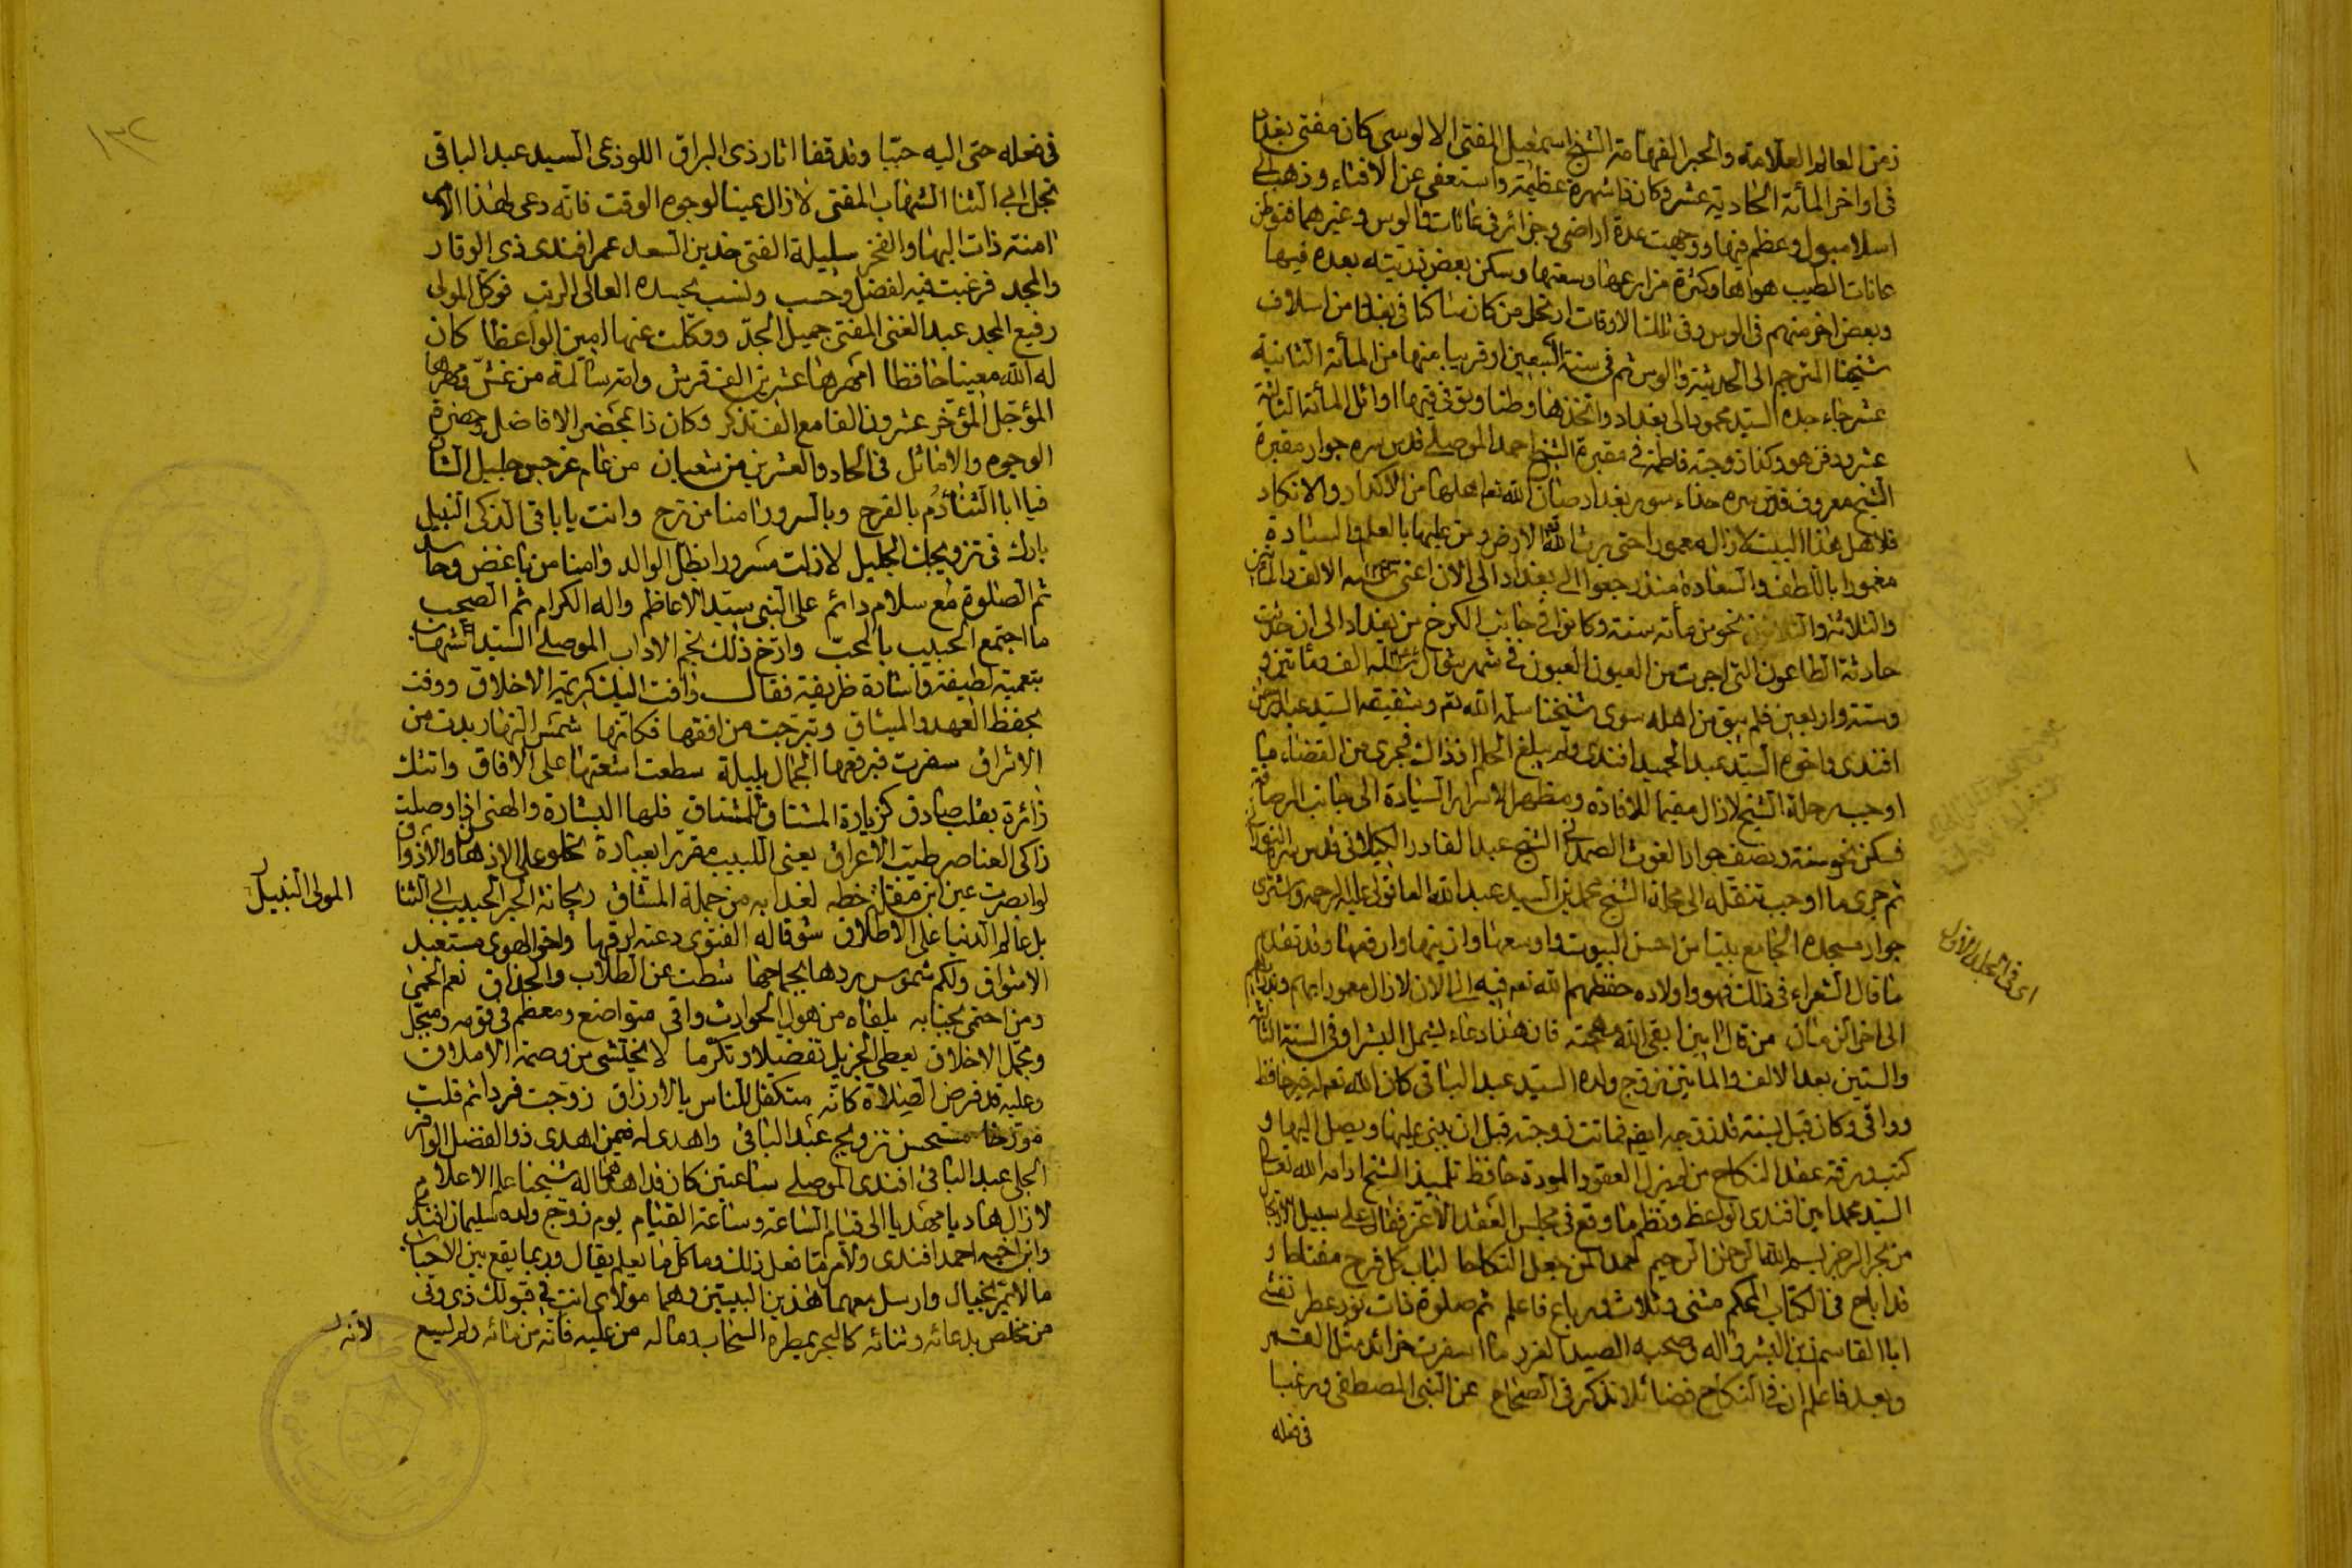 زمن العالم العلامة والحبر الفهامة الشيخ اسمعيل المفتى الالوسى كان مفتى بغداد
فى اواخر المأتة الحادية عشر وكان ذا شهرة عظيمة واستعفى عن الافتاء وذهب الى
اسلامبول وعظم فيها ووجهت عدة اراضى وجزائر فى عانات والوس وغيرهما فتوطن
عانات لطيب هواها وكثرة مزارعها وسعتها وسكن بعض ذريته بعده فيها
وبعض اخر منهم فى الوس وفى تلك الاوقات ارتحل من كان ساكنا فى بغداد من اسلاف
شيخنا المترجم الى الحديثة والوس ثم فى سنة السبعين او قريبا منها من المأتة الثانية
عشر جاء جده السيد محمود الى بغداد واتخذها وطنا وتوفى فيها اوائل المأتة الثالثة
عشر ودفن هو وكذا زوجته فاطمة فى مقبرة الشيخ احمد الموصلى قدس سره جوار مقبرة
الشيخ معروف قدس سره حذاء سور بغداد صان الله تعالى اهلها من الاكدار والانكاد
فلا هل هذا البيت لا زال معمورا حتى يرث الله الارض ومن عليها بالعلم والسيادة
مغمورا باللطف والسعادة منذ رجعوا الى بغداد الى الان اعنى سنة الالف والمأتين
والثلاثة والثلاثين نحو من مأته سنة وكانوا فى جانب الكرخ من بغداد الى ان حدثت
حادثة الطاعون التى اجرت من العيون العيون فى شهر شوال سنة الف ومأتين و
وستة واربعين فلم يبق من اهله سوى شيخنا سلمه الله تعم وشقيقه السيد عبد الرحمن
افندى واخوه السيد عبد الحميد افندى ولم يبلغ الحلم اذ ذاك فجرى من القضاء ما
اوجب رحلة الشيخ لا زال مقيما للافادة ومظهر الاسرار السيادة الى جانب الرصافة
فسكن نحو سنة ونصف جوار الغوث الصمدانى الشيخ عبد القادر الكيلانى قدس سره النورانى
ثم جرى ما اوجب تنقله الى محلة الشيخ محمد بن السيد عبد الله العاقولى عليه الرحمة واشترى
جوار مسجده الجامع بيتا من احسن البيوت واوسعها وازينها وارفعها وقد تقدم
ما قال الشعراء فى ذلك فهو واولاده حفظهم الله تعم فيه الى الان لا زال معمورا بهم
الى اخر الزمان من قال امين ابقى الله مهجته فان هذا دعاء يشمل البشرا وفى السنة الثالثة
والستين بعد الالف والمأتين تزوج ولده السيد عبد الباقى كان الله تعم له خير حافظ
وواقى وكان قبل بسنة قد زوجه ايضا فماتت زوجته قبل ان يبنى عليها ويصل اليها و
كتب ورقة عقد النكاح من لم يزل العقود المودة حافظ تلميذ الشيخ ادامه الله تعالى
السيد محمد امين افندى الواعظ ونظم ما وقع فى مجلس العقد الاغر فقال على سبيل الارتجال
من بحر الرجز بسم الله الرحمن الرحيم احمد لمن جعل النكاحا لباب كل فرح مفتاحا و
قد اباح فى الكتاب المحكم مثنى وثلاث ورباع فاعلم ثم صلوة ذات نور عطر تغشى
ابا القاسم زين البشر واله وصحبه الصيد الغرر ما اسفرت خرائد مثل القمر
وبعد فاعلم ان فى النكاح فضائلا تذكر فى الصحاح عن النبى المصطفى ورغبا
فى فعله
اى فى المجلد الاول
فى فعله حتى اليه حببا وقد قفا اثار ذى البراق اللوذعى السيد عبد الباقى
نجل ابى الثنا الشهاب المفتى لا زال عينا لوجوه الوقت فانه دعى لهذا الامر
امنة ذات البها والفخر سليلة الفتى خدين السعد عمر افندى ذى الوقار
والمجد فرغبت فيه لفضل وحسب ونسب بجده العالى الرتب فوكل المولى
رفيع المجد عبد الغنى المفتى جميل الجد ووكلت عنها امين الواعظا كان
له الله معينا حافظا امهرها عشرين الف قرش وامة سالمة من غش ومهرها
المؤجل المؤخر عشرون الفا مع الف تذكر وكان ذا بمحضر الافاضل وحضرة
الوجوه والاماثل فى الحاد والعشرين من شعبان من عام غرجس جليل الشان
فيا ابا الثنا دم بالفرح وبالسرور امنا من ترح وانت يا باقى الذكى النبيل
بارك فى تزويجك الجليل لا زلت مسرورا بظل الوالد وامنا من باغض وحاسد
ثم الصلوة مع سلام دائم على النبى سيد الاعاظم واله الكرام ثم الصحب
ما اجتمع الحبيب بالمحب وارخ ذلك نجم الاداب الموصلى السيد شهاب
بتعمية لطيفة واشارة ظريفة فقال وافت اليك كريمة الاخلاق ووفت
بحفظ العهد والميثاق وتبرجت من افقها فكانها شمس النهار بدت من
الاشراق سفرت فبرقعها الجمال بليلة سطعت اشعتها على الافاق واتتك
زائرة بقلب صادق كزيارة المشتاق للمشتاق فلها البشارة والهنى اذ اوصلت
زاكى العناصر طيب الاعراق يعنى اللبيب مقررا بعبارة تحلو على الاذهان والاذواق
لو ابصرت عين ابن مقلة خطه لغدا به من جملة المشاق ريحانة الحبر الحبيب ابى الثنا
المولى النبيل
بل عالم الدنيا على الاطلاق شوقا له الفتوى دعته لرقها واخو الهوى مستعبد
الاشواق ولكم شموس ردها بجماحها شطت عن الطلاب والحذاق نعم الحمى
ومن احتمى بجنابه يلقاه من هول الحوادث واقى متواضع ومعظم فى قومه ومبجل
ومجمل الاخلاق يعطى الجزيل تفضلا وتكرما لا يختشى من وصمة الاملاق
وعليه قد فرض الصلاة كانه متكفل للناس بالارزاق زوجت فردا ثم قلت
مؤرخا مستحسن تزويج عبد الباقى واهدى له فيمن اهدى ذو الفضل الوافر
الجلى عبد الباقى افندى الموصلى ساعتين كان قد اهداهما له شيخنا علم الاعلام
لا زال هاديا مهديا الى قيام الساعة وساعة القيام يوم زوج ولده سليمان افندى
وابن اخيه احمد افندى ولامر ما فعل ذلك وما كل ما يعلم يقال وربما يقع بين الاحباب
ما لا يمر بخيال وارسل معهما هذين البيتين وهما مولاى انت فى قبولك ذى وفى
من مخلص بدعائه وثنائه كالبحر يمطره السحاب وما له من عليه فانه من مائه ولم يسع
لانه
١٣٢